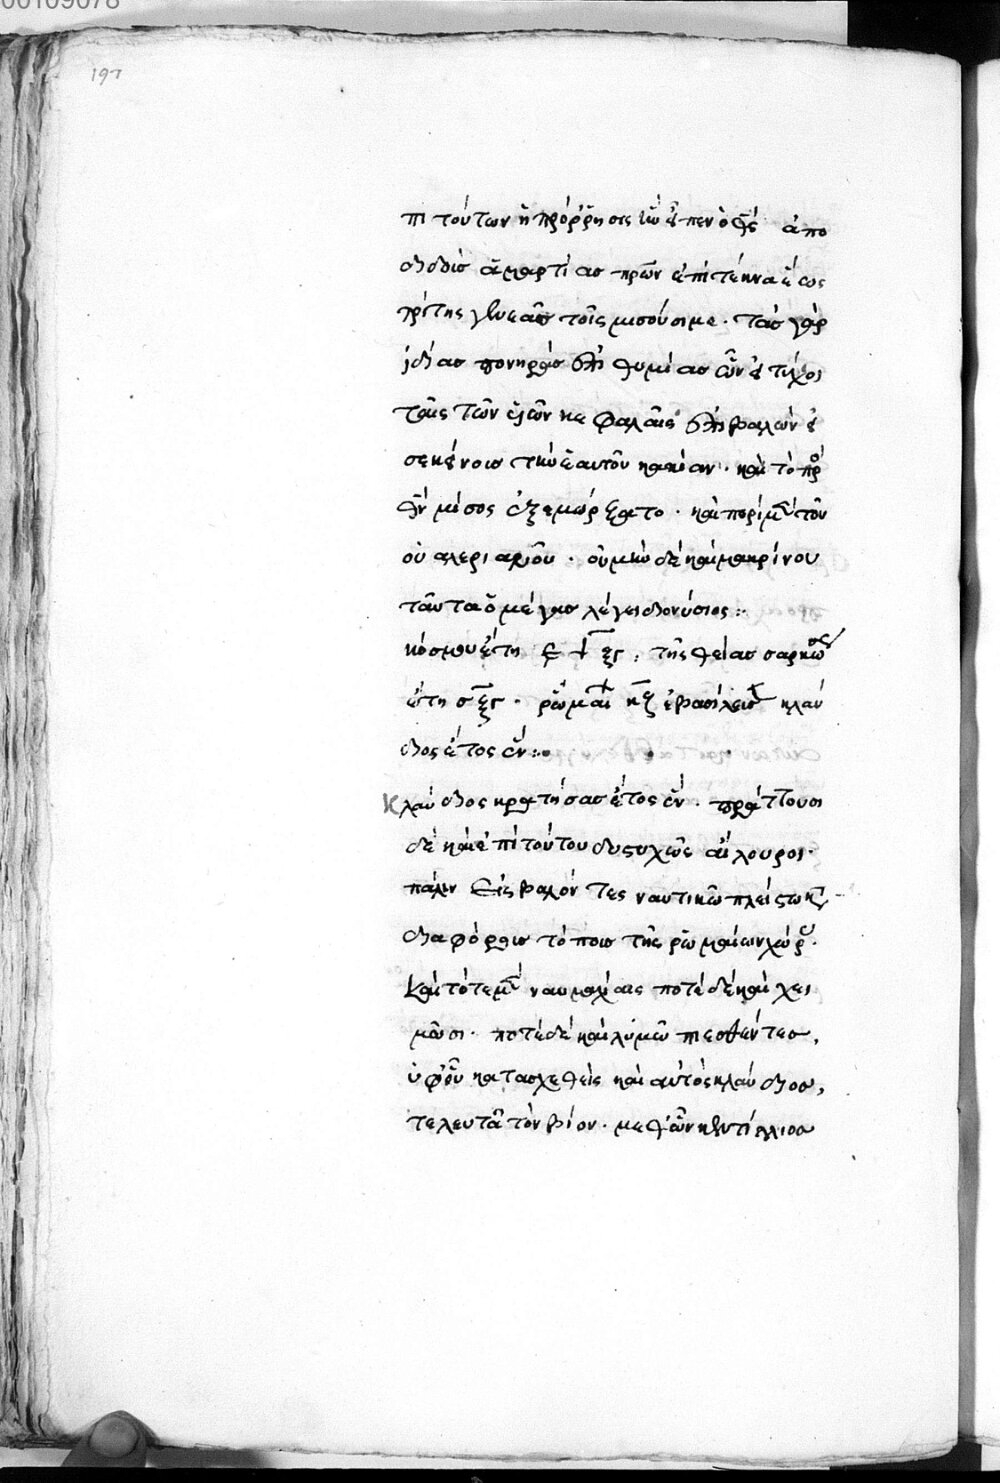 00109078
197
πὶ τούτων ἡ πρόρρησις ἣν εἶπεν ὁ θς· ἀπο
διδοὺς ἁμαρτίας πρων ἐπὶ τέκνα ἕως
τρίτης γενεᾶς τοῖς μισοῦσί με. τὰς γὰρ
ἰδίας πονηρὰς ἐπιθυμίας ὧν ἐτύχοι
ταῖς τῶν υἱῶν κεφαλαῖς ἐπιβαλὼν ἐ
σεκείνοις τὴν ἑαυτοῦ κακίαν. καὶ τὸ πρ
θν μίσος ἐξεμώρξατο. καὶ περὶ μὲν τοῦ
οὐαλεριανοῦ. οὐ μὴν δὲ καὶ μακρίνου
ταῦτα ὁ μέγας λέγει διονύσιος:
κόσμου ἔτη ͵εψξγ, τῆς θείας σαρκώσ
ἔτη σξγ. ῥωμαί κζ ἐβασίλευσ κλαύ
διος ἔτος ἕν:
Κλαύδιος κρατήσας ἔτος ἕν. πράττουσι
δὲ καὶ ἐπὶ τούτου δυστυχῶς αἴλουροι.
πάλιν εἰσβαλόντες ναυτικῶ πλείστω κ
διαφόροις τόποις τῆς ῥωμαίων χώρ.
καὶ τότε μὲν ναυμαχίαις ποτὲ δὲ καὶ χει
μῶσι. ποτὲ δὲ καὶ λιμῶ πιεσθέντες,
ὑφ' οὗ κατασχεθεὶς καὶ αὐτὸς κλαύδιος,
τελευτᾶ τὸν βίον. μεθ' ὃν κυντίλλιος